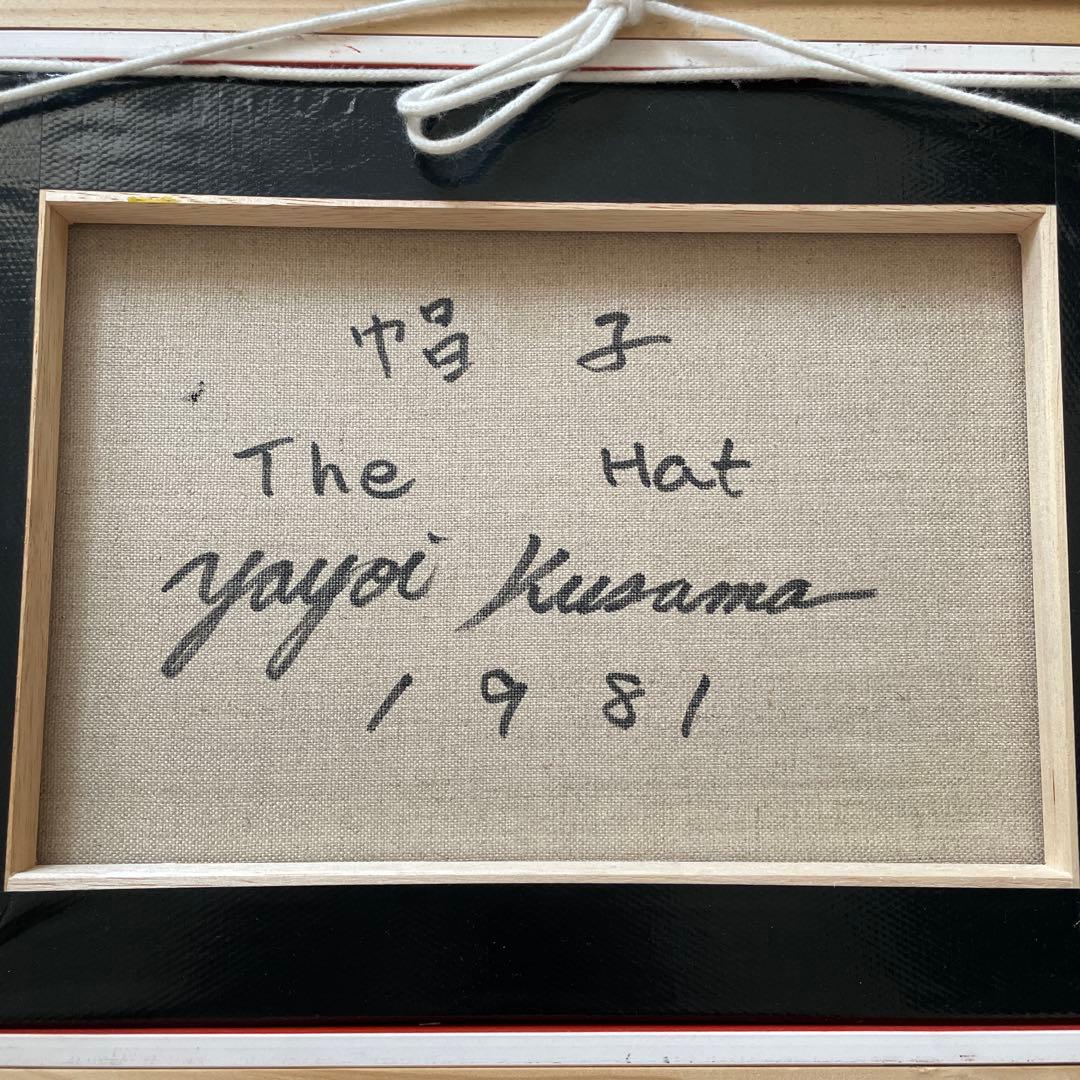 帽子
The Hat
Yayoi Kusama
1981